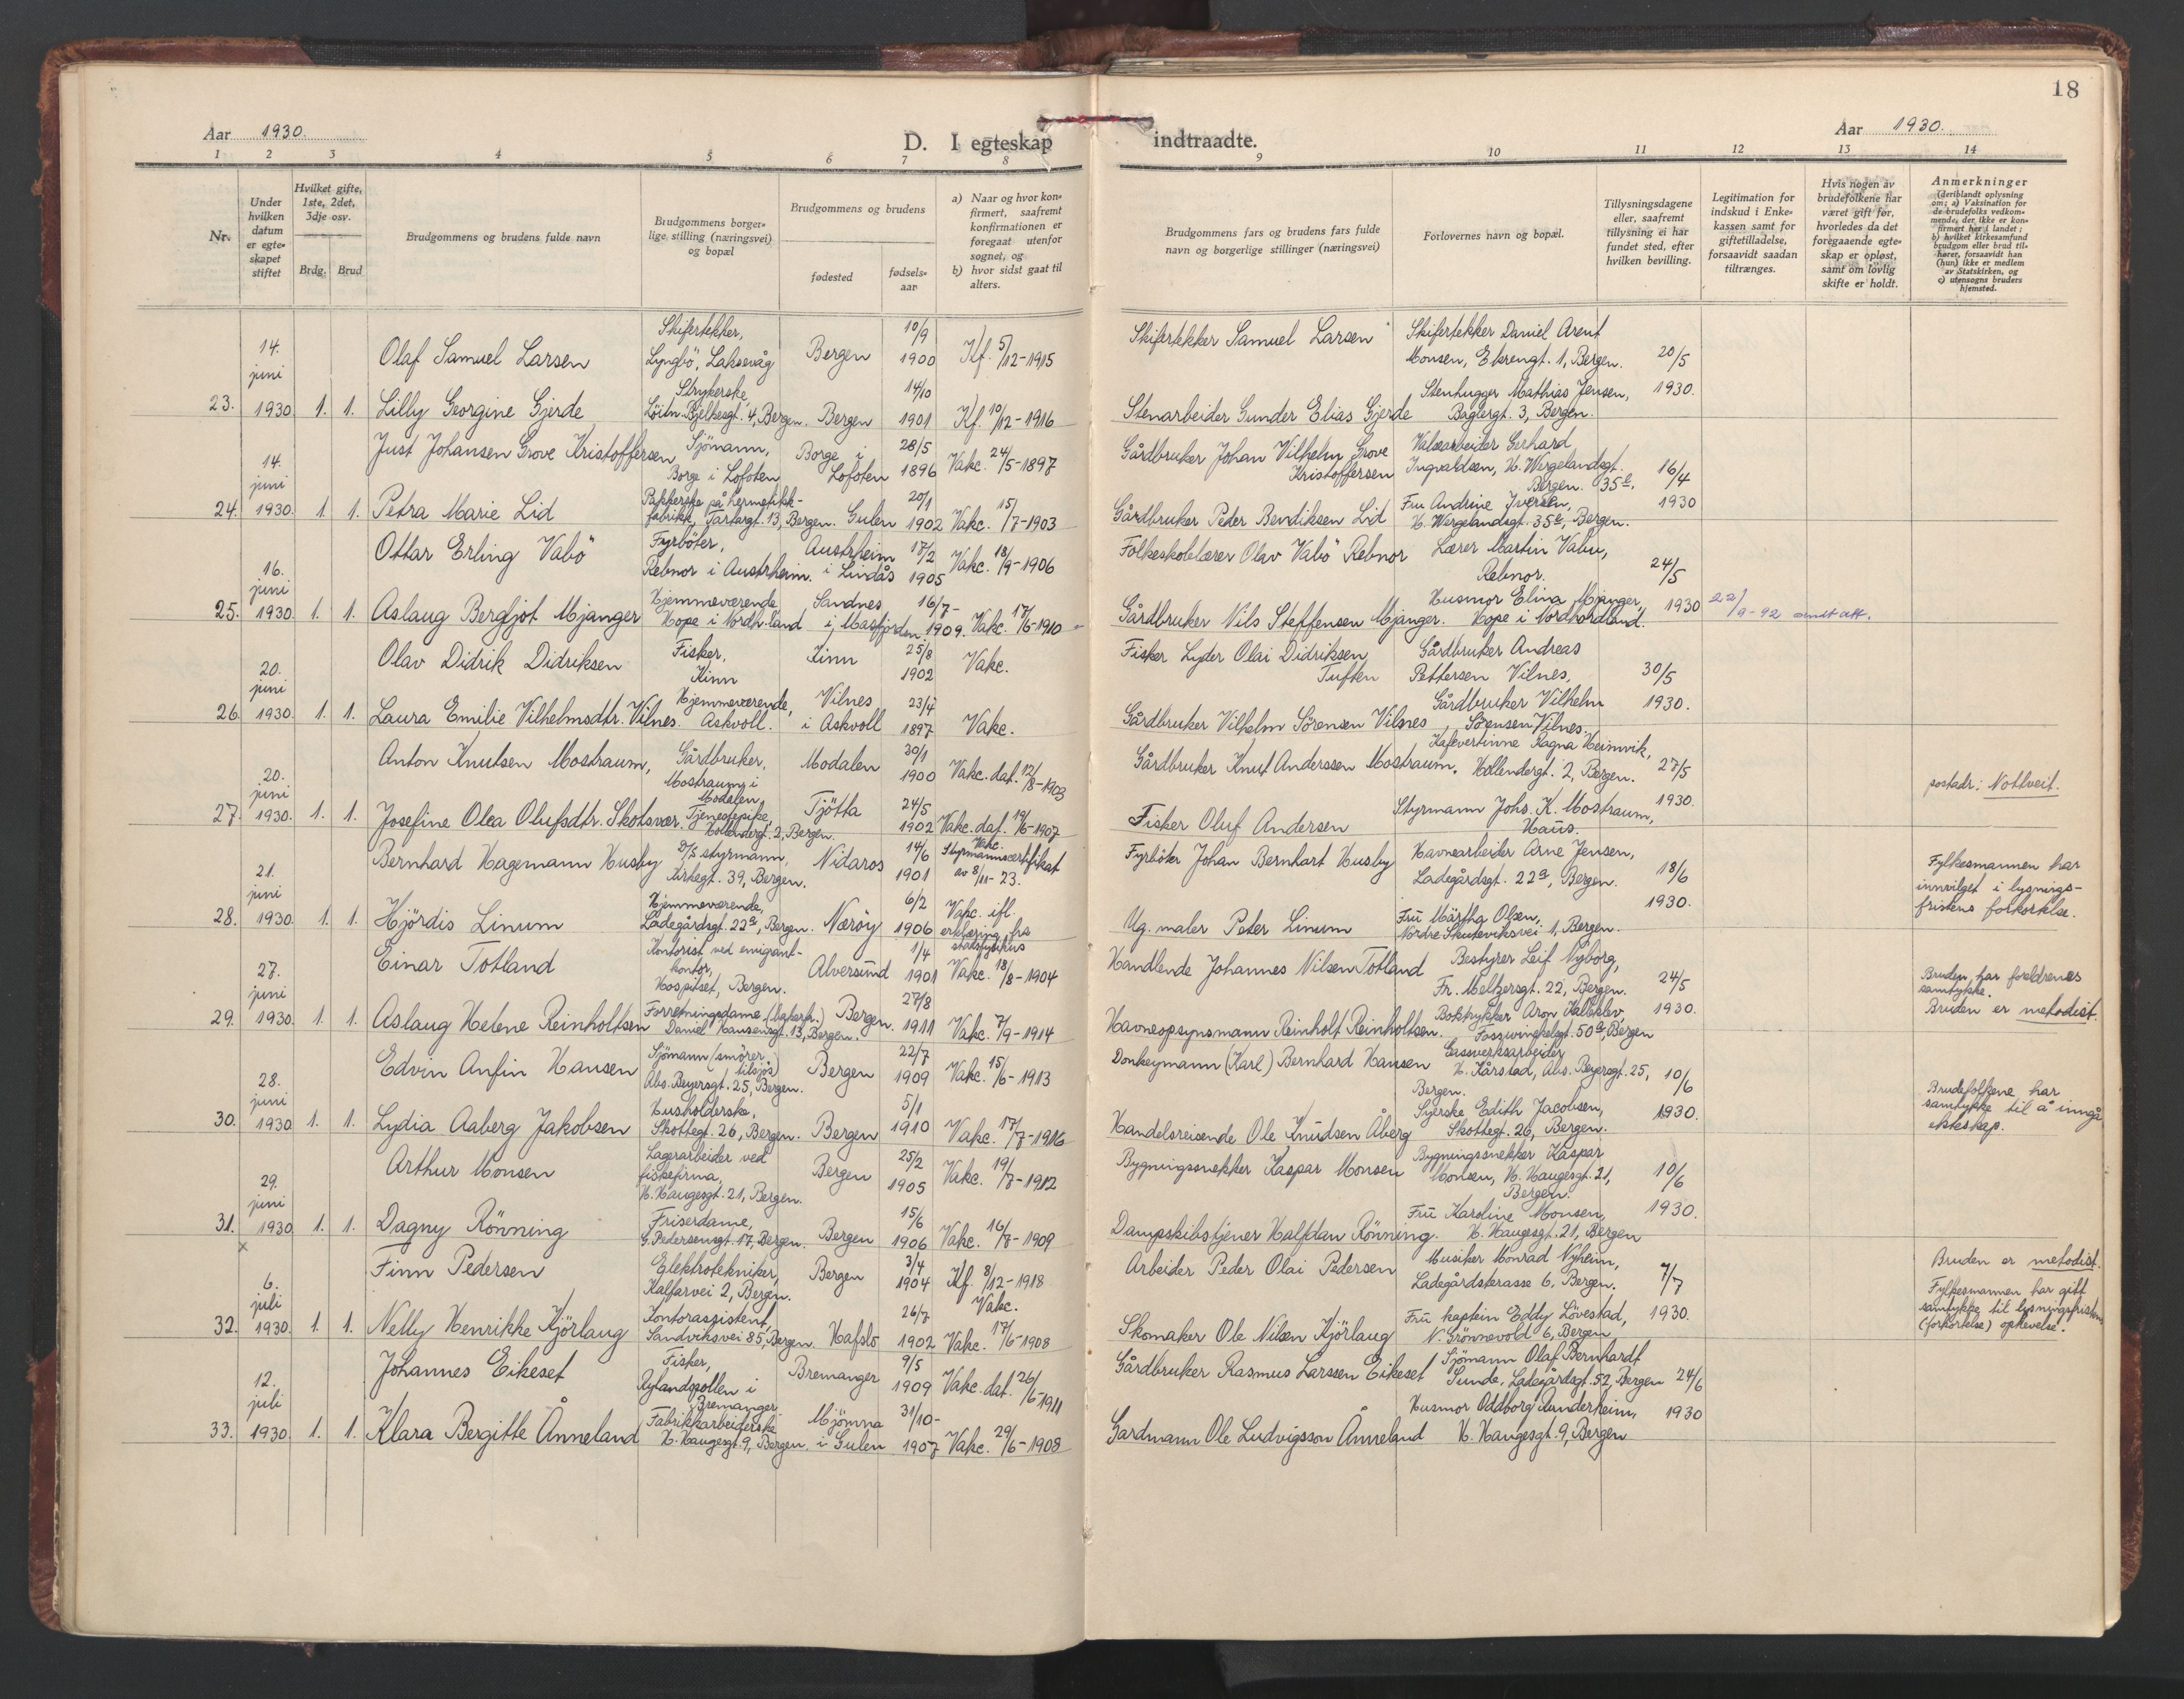 18
Aar 1930.
D. I egteskap indtraadte.
Aar 1930.
1 2 3 4 5 6 7 8 9 10 11 12 13 14
Nr.
Under hvilken datum er egte-skapet stiftet
Hvilket gifte, 1ste, 2det, 3dje osv.
Brdg. Brud
Brudgommens og brudens fulde navn
Brudgommens borger-lige stilling (næringsvei) og bopæl
Brudgommens og brudens
fødested
fødsels-aar
a) Naar og hvor kon-firmert, saafremt konfirmationen er foregaat utenfor sognet, og
b) hvor sidst gaat til alters.
Brudgommens fars og brudens fars fulde navn og borgerlige stillinger (næringsvei)
Forlovernes navn og bopæl.
Tillysningsdagene eller, saafremt tillysning ei har fundet sted, efter hvilken bevilling.
Legitimation for indskud i Enke-kassen samt for giftetilladelse, forsaavidt saadan tiltrænges.
Hvis nogen av brudefolkene har været gift før, hvorledes da det foregaaende egte-skap er opløst, samt om lovlig skifte er holdt.
Anmerkninger
(deriblandt oplysning om: a) Vaksination for de brudefolks vedkom-mende, der ikke er kon-firmert her i landet; b) hvilket kirkesamfund brudgom eller brud til-hører, forsaavidt han (hun) ikke er medlem av Statskirken, og c) utensogns bruders hjemsted.
23. 14. juni 1930. 1. 1.
Olaf Samuel Larsen Skifertekker, Lyngbö, Laksevåg Bergen 10/9 1900 Kf. 5/12-1915 Skifertekker Samuel Larsen Skifertekker Daniel Arent Monsen, Ekrengt. 1, Bergen. 20/5 1930.
Lilly Georgine Gjerde Strykerske, Löitn. Bjelkesgt. 4, Bergen. Bergen 14/10 1901 Kf. 10/12-1916 Stenarbeider Gunder Elias Gjerde Stenhugger Mathias Jensen, Baglergt. 3, Bergen.
24. 14. juni 1930. 1. 1.
Just Johansen Grove Kristoffersen Sjömann, Borge i Lofoten Borge i Lofoten 28/5 1896 Vakc. 24/5-1897 Gårdbruker Johan Vilhelm Grove Kristoffersen Gerhard Ingvaldsen, H. Wergelandsgt. 35c, Bergen. 16/4 1930
Petra Marie Lid Pakkerske på hermetikk-fabrikk, Tartargt. 13, Bergen. Gulen 20/1 1902 Vakc. 15/7-1903 Gårdbruker Peder Bendiksen Lid Fru Andrine Iversen, H. Wergelandsgt. 35c, Bergen.
25. 16. juni 1930. 1. 1.
Ottar Erling Vabö Fyrböter, Rebnor i Austrheim. Austrheim i Lindås 17/2 1905 Vakc. 18/9-1906 Folkeskolelærer Olav Vabö Rebnor Lærer Martin Vabu, Rebnor. 24/5 1930
Aslaug Bergljot Mjanger Hjemmeværende, Hope i Nordh.land Sandnes i Masfjorden. 16/7-1909. Vakc. 17/6-1910 Gårdbruker Nils Steffensen Mjanger. Husmor Elina Mjanger, Hope i Nordhordland. 22/9-92 omdt att.
26. 20. juni 1930. 1. 1.
Olav Didrik Didriksen Fisker, Kinn Kinn 25/8 1902 Vakc. Fisker Lyder Olai Didriksen Tuften Gårdbruker Andreas Pettersen Vilnes, 30/5 1930.
Laura Emilie Vilhelmsdtr. Vilnes. Hjemmeværende, Askvoll. Vilnes i Askvoll 23/4 1897 Vakc. Gårdbruker Vilhelm Sörensen Vilnes Gårdbruker Vilhelm Sörensen Vilnes.
27. 20. juni 1930. 1. 1.
Anton Knutsen Mostraum, Gårdbruker, Mostraum i Modalen Modalen 30/1 1900 Vakc. dat. 12/8-1903 Gårdbruker Knut Anderssen Mostraum. Kafevertinne Ragna Heimvik, Hollendergt. 2, Bergen. 27/5 1930. postadr: Nottveit.
Josefine Olea Olufsdtr. Skotsvær. Tjenestepike, Hollendergt. 2, Bergen. Tjötta 24/5 1902 Vakc. dat. 19/6-1907 Fisker Oluf Andersen Styrmann Johs. K. Mostraum, Haus.
28. 21. juni 1930. 1. 1.
Bernhard Hagemann Husby D/S styrmann, Kirkegt. 39, Bergen. Nidaros 14/6 1901 Vakc. Styrmannscertifikat av 8/11-23. Fyrböter Johan Bernhart Husby Havnearbeider Arne Jensen, Ladegårdsgt. 22a, Bergen. 18/6 1930. Fylkesmannen har innvilget i lysnings-fristens forkortelse.
Hjördis Linum Hjemmeværende, Ladegårdsgt. 22a, Bergen. Næröy 6/2 1906 Vakc. ifl. erklæring fra statsfysikus Ug. maler Peter Linum Fru Märtha Olsen, Nordre Skuteviksvei 1, Bergen.
29. 27. juni 1930. 1. 1.
Einar Totland Kontorist ved emigant-kontor, Hospitset, Bergen. Alversund 1/4 1901 Vakc. 18/8-1904 Handlende Johannes Nilsen Totland Bestyrer Leif Nyborg, Fr. Meltzersgt. 22, Bergen. 24/5 1930. Bruden har foreldrenes samtykke.
Aslaug Helene Reinholtsen Forretningsdame (bakerf.) Daniel Hansensgt. 13, Bergen. Bergen. 27/8 1911 Vakc. 7/9-1914 Havneopsynsmann Reinholt Reinholtsen. Boktrykker Aron Kalleklev, Fosswinckelsgt. 50a, Bergen Bruden er metodist.
30. 28. juni 1930 1. 1.
Edvin Anfin Hansen Sjömann (smörer tilsjös) Abs. Beyersgt. 25, Bergen. Bergen 22/7 1909 Vakc. 15/6-1913 Donkeymann (Karl) Bernhard Hansen Gassverksarbeider H. Kårstad, Abs. Beyersgt. 25, Bergen. 10/6 1930. Brudefolkene har samtykke til å inngå ekteskap.
Lydia Aaberg Jakobsen Husholderske, Skottegt. 26, Bergen. Bergen 5/1 1910 Vakc. 17/7-1916 Handelsreisende Ole Knudsen Åberg Syerske Edith Jacobsen, Skottegt. 26, Bergen.
31. 29. juni 1930 1. 1.
Arthur Monsen Lagerarbeider ved fiskefirma, H. Haugesgt. 21, Bergen. Bergen 25/2 1905 Vakc. 19/7-1912 Bygningssnekker Kaspar Monsen Bygningssnekker Kaspar Monsen, H. Haugesgt. 21, Bergen. 10/6 1930.
Dagny Rönning Friserdame, G. Pedersensgt. 17, Bergen. Bergen 15/6 1906 Vakc. 16/7-1909 Dampskibstjener Halfdan Rönning. Fru Karoline Monsen, H. Haugesgt. 21, Bergen
x
32. 6. juli 1930. 1. 1.
Finn Pedersen Elektrotekniker, Kalfarvei 2, Bergen. Bergen 3/4 1904 Kf. 8/12-1918 Vakc. Arbeider Peder Olai Pedersen Musiker Monrad Nyheim, Ladegårdsterasse 6, Bergen. 7/7 1930. Bruden er metodist.
Nelly Henrikke Kjörlaug Kontorassistent, Sandviksvei 85, Bergen. Hafslo 26/7 1902 Vakc. 17/6-1908 Skomaker Ole Nilsen Kjörlaug Fru kaptein Eddy Lövestad, N. Grönnevold 6, Bergen Fylkesmannen har gitt samtykke til lysningsfristens (forkortelse) ophevelse.
33. 12. juli 1930. 1. 1.
Johannes Eikeset Fisker, Rylandspollen i Bremanger Bremanger 9/5 1909 Vakc. dat. 26/6-1911 Gårdbruker Rasmus Larssen Eikeset Sjömann Olaf Bernhardt Sunde, Ladegårdsgt. 52, Bergen 24/6 1930
Klara Bergitte Ånneland Fabrikkarbeiderske H. Haugesgt. 9, Bergen Mjömna i Gulen 31/10-1907 Vakc. 29/6-1908 Gardmann Ole Ludvigsson Ånneland Husmor Oddborg Runderheim, H. Haugesgt. 9, Bergen